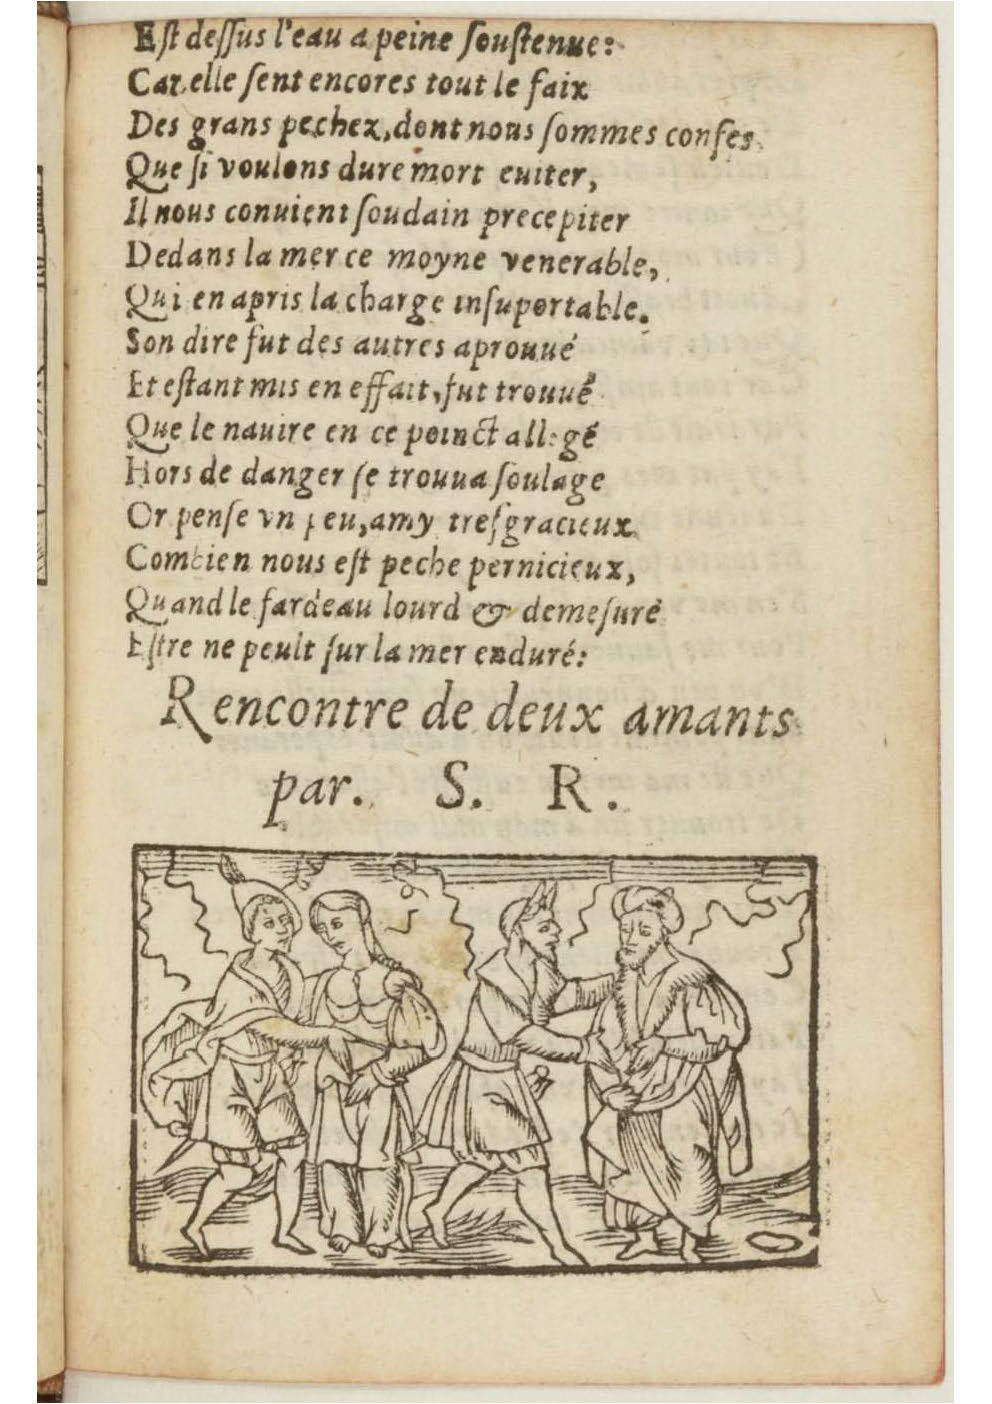 Eſt deſſus l'eau a peine ſouſtenue:
Car elle ſent encores tout le faix
Des grans pechez, dont nous ſommes confes.
Que ſi voulons dure mort euiter,
Il nous conuient ſoudain precepiter
Dedans la mer ce moyne venerable,
Qui en apris la charge inſuportable.
Son dire fut des autres aprouué
Et eſtant mis en effait, fut trouué
Que le nauire en ce poinct allegé
Hors de danger ſe trouua ſoulage
Or penſe vn peu, amy treſgracieux
Combien nous eſt peche pernicieux,
Quand le fardeau lourd & demeſuré
Eſtre ne peult ſur la mer enduré:
Rencontre de deux amants
par. S. R.